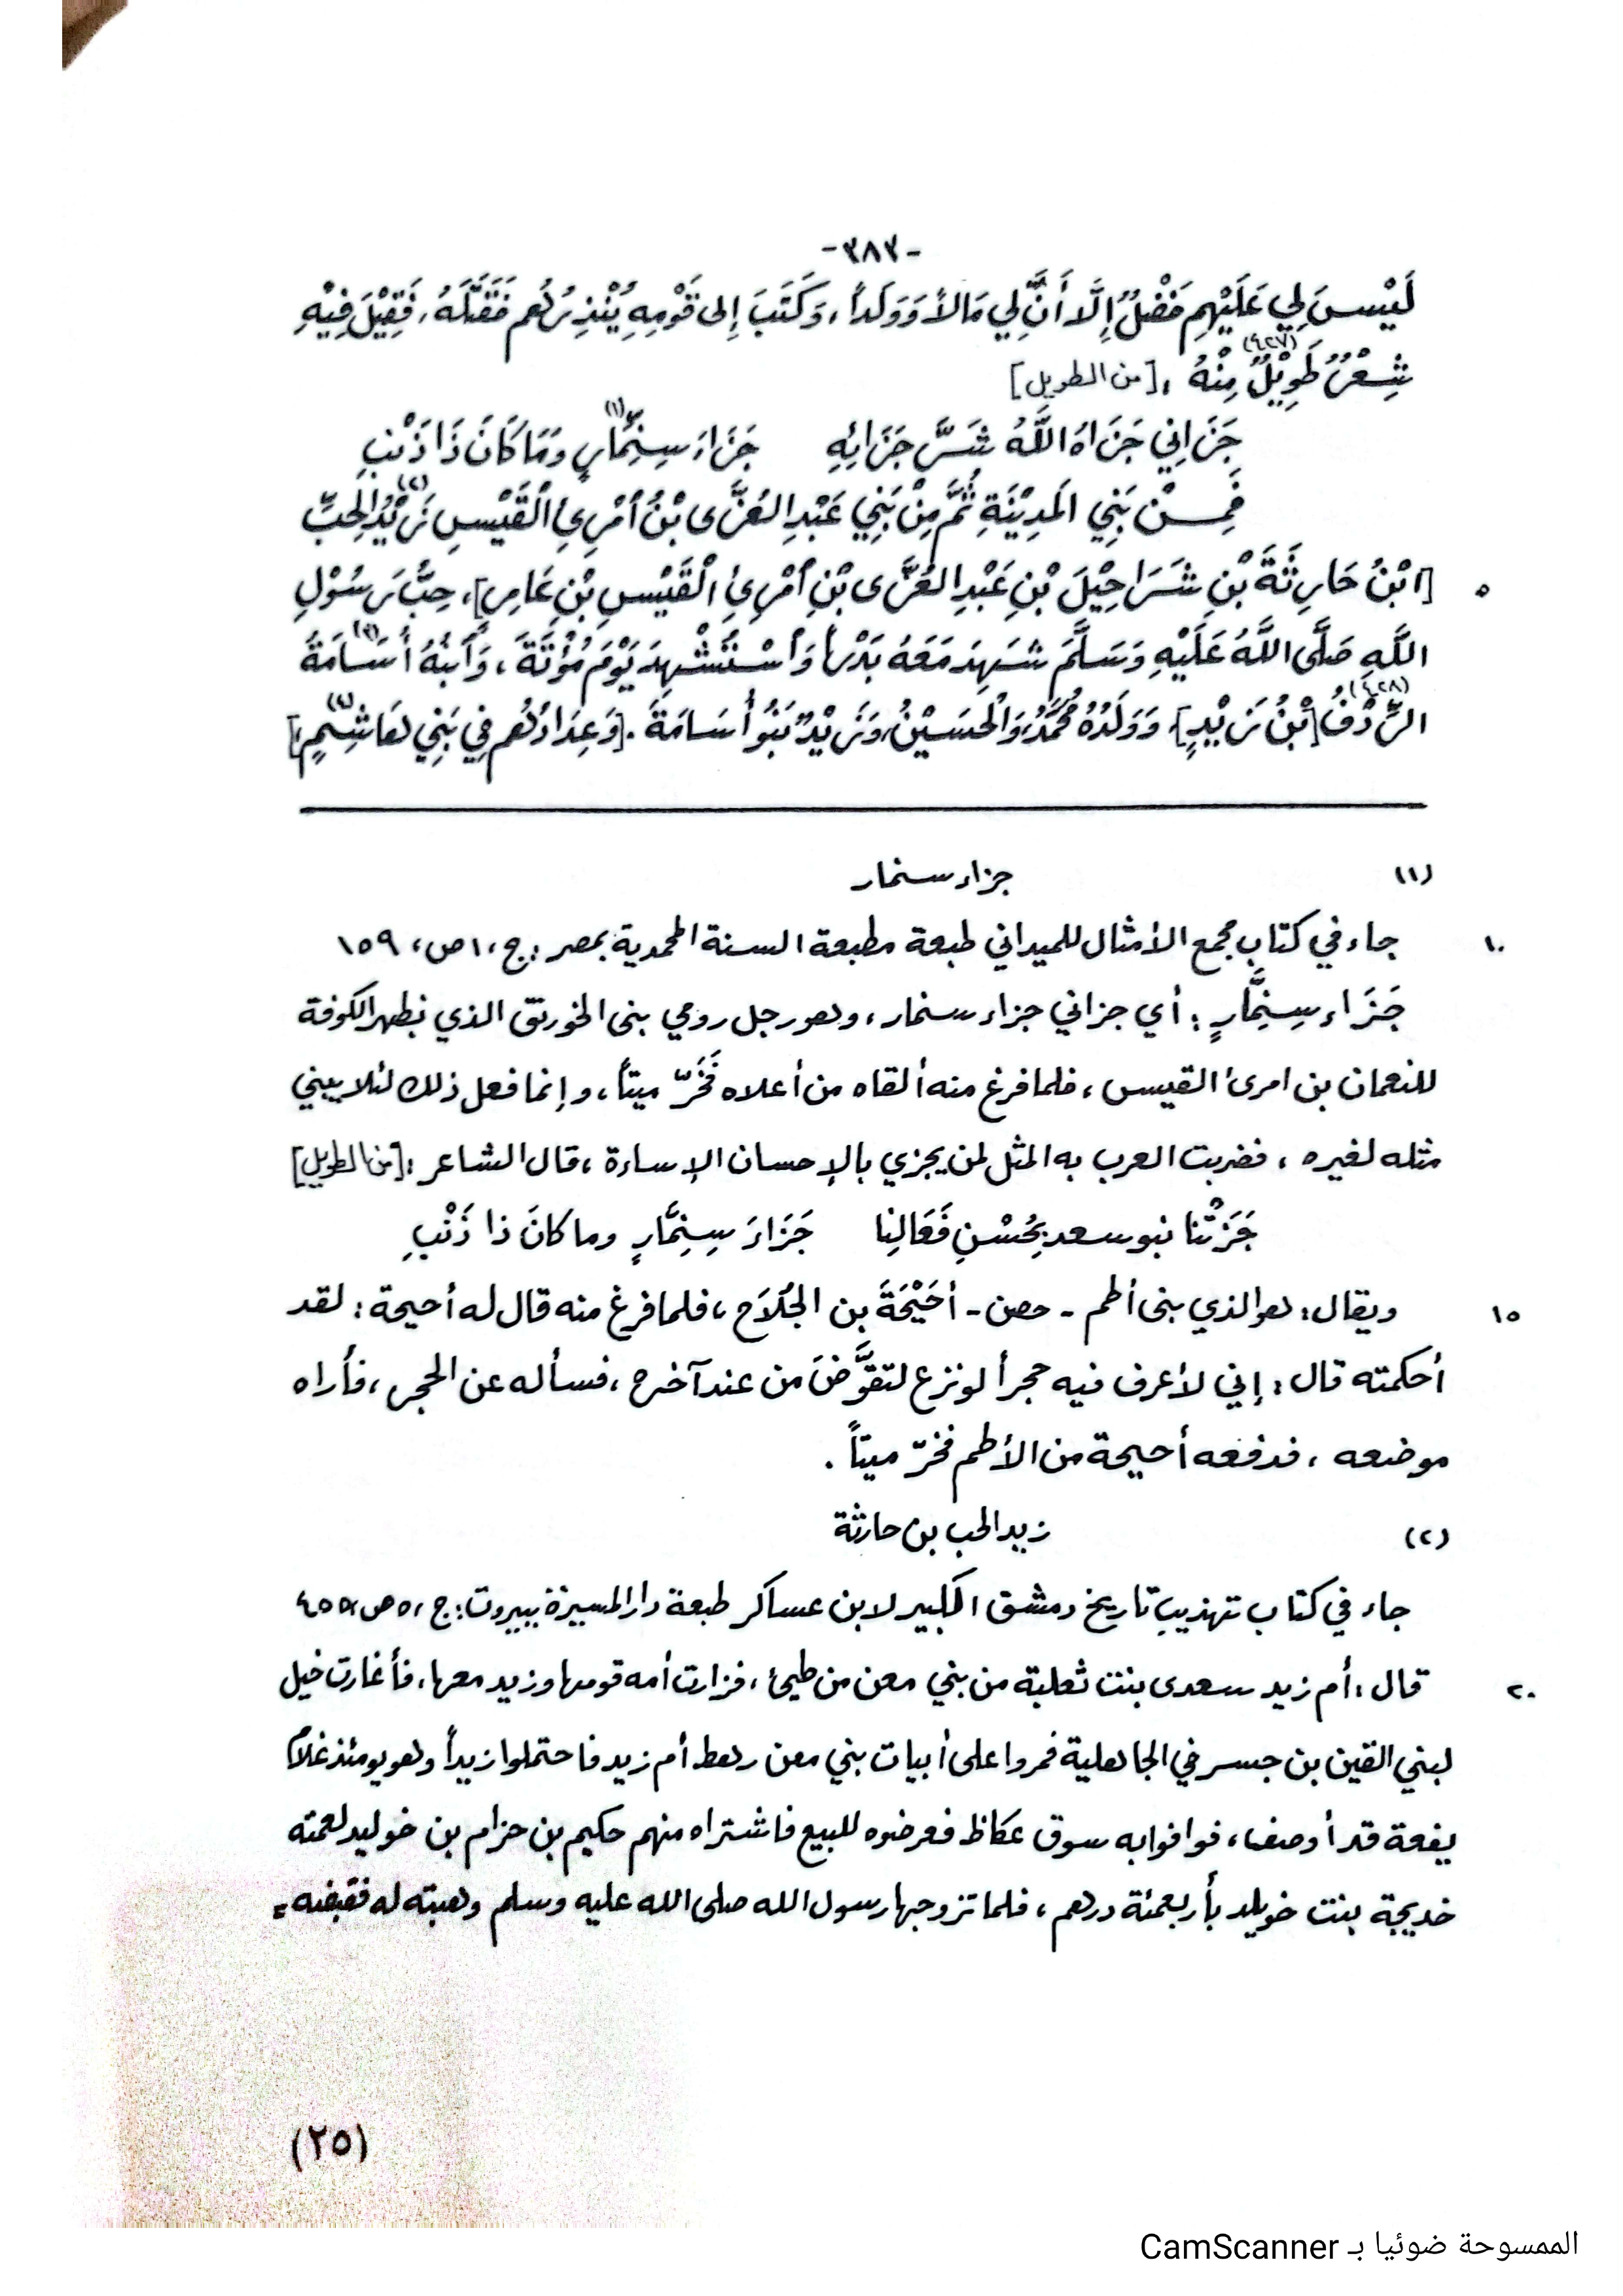 -٣٨٣-
لَيْسَ لِي عَلَيْهِم فَضْلٌ إِلَّا أَنَّ لِي مَالاً وَوَلَداً، وَكَتَبَ إِلى قَوْمِهِ يُنْذِرُهُم فَقَتَلَهُ، فَقِيْلَ فِيْهِ
شِعْرٌ طَوِيْلٌ(٤٢٧) مِنْهُ : [من الطويل]
جَزَانِي جَزَاهُ اللَّهُ شَرَّ جَزَائِهِ جَزَاءَ سِنِمَّارٍ(١) وَمَا كَانَ ذَا ذَنْبِ
فَمِنْ بَنِي المَدِيْنَةِ ثُمَّ مِنْ بَنِي عَبْدِ العُزَّى بْنُ أمْرِئِ الْقَيْسِ زَيْدُ(٢) الحِبِّ
[ابْنُ حَارِثَةَ بْنِ شَرَاحِيْلَ بْنِ عَبْدِ العُزَّى بْنِ أمْرِئِ الْقَيْسِ بْنِ عَامِرٍ]، حِبُّ رَسُوْلِ ٥
اللَّهِ صَلَّى اللَّهُ عَلَيْهِ وَسَلَّمَ شَهِدَ مَعَهُ بَدْراً وَاسْتُشْهِدَ يَوْمَ مُؤْتَةَ(٣)، وَابْنُهُ أُسَامَةُ
الرِّدْفُ(٤٢٨) [بْنُ زَيْدٍ]، وَوَلَدُهُ مُحَمَّدٌ، وَالْحَسَيْنُ، وَزَيْدٌ بَنُو أُسَامَةَ . [وَعِدَادُهُم فِي بَنِي هَاشِمٍ(٤)]
(١) جزاء سنمار
جاء في كتاب مجمع الأمثال للميداني طبعة مطبعة السنة المحمدية بمصر : ج، ١ ص، ١٥٩ ١٠
جَزَاء سِنِمَّارٍ : أي جزاني جزاء سنمار، وهو رجل رومي بنى الخورنق الذي بظهر الكوفة
للنعمان بن امرئ القيس، فلما فرغ منه ألقاه من أعلاه فَخَرّ ميتاً، وإنما فعل ذلك لئلا يبني
مثله لغيره ، فضربت العرب به المثل لمن يجزي بالإحسان الإساءة ، قال الشاعر : [من الطويل]
جَزَتْنا بنو سعد بِحُسْنِ فَعَالِنا جَزَاءَ سِنِمَّارٍ وما كانَ ذا ذَنْبِ
ويقال : هو الذي بنى أطم - حصن - أحَيْحَةَ بن الجُلاَح ، فلما فرغ منه قال له أحيحة : لقد ١٥
أحكمته قال : إني لأعرف فيه حجراً لو نزع لتقوَّضَ من عند آخره ، فسأله عن الحجر ، فأراه
موضعه ، فدفعه أحيحة من الأطم فخرّ ميتاً .
(٢) زيد الحب بن حارثة
جاء في كتاب تهذيب تاريخ دمشق الكبير لابن عساكر طبعة دار المسيرة ببيروت : ج، ٥ ص، ٤٥٥
قال : أم زيد سعدى بنت ثعلبة من بني معن من طيئ ، فزارت أمه قومها وزيد معها، فأغارت خيل ٢٠
لبني القين بن جسر في الجاهلية فمروا على أبيات بني معن رهط أم زيد فاحتملوا زيداً وهو يومئذ غلامٌ
يفعة قد أوصف، فوافوا به سوق عكاظ فعرضوه للبيع فاشتراه منهم حكيم بن حزام بن خوليد لعمته
خديجة بنت خويلد بأربعمئة درهم ، فلما تزوجها رسول الله صلى الله عليه وسلم وهبته له فقبضه =
(٢٥)
الممسوحة ضوئيا بـ CamScanner